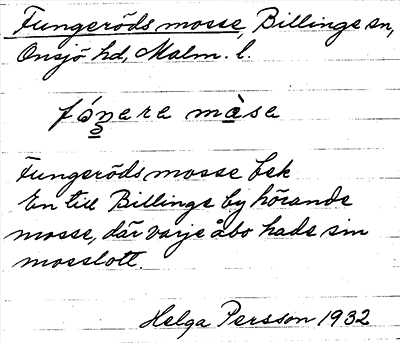 Fungeröds mosse, Billinge sn,
Onsjö hd, Malm. l.
måsa
Fungeröds mosse bek
En till Billinge by hörande
mosse, där varje åbo hade sin
mosslott.
Helga Persson 1932